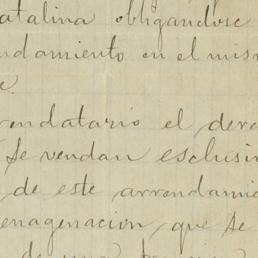 atalina obligandose
ndamiento en el mism
e.
rrendatario el dere
Se vendan esclusiv
de este arrendamie
enagenacion, que se
de una